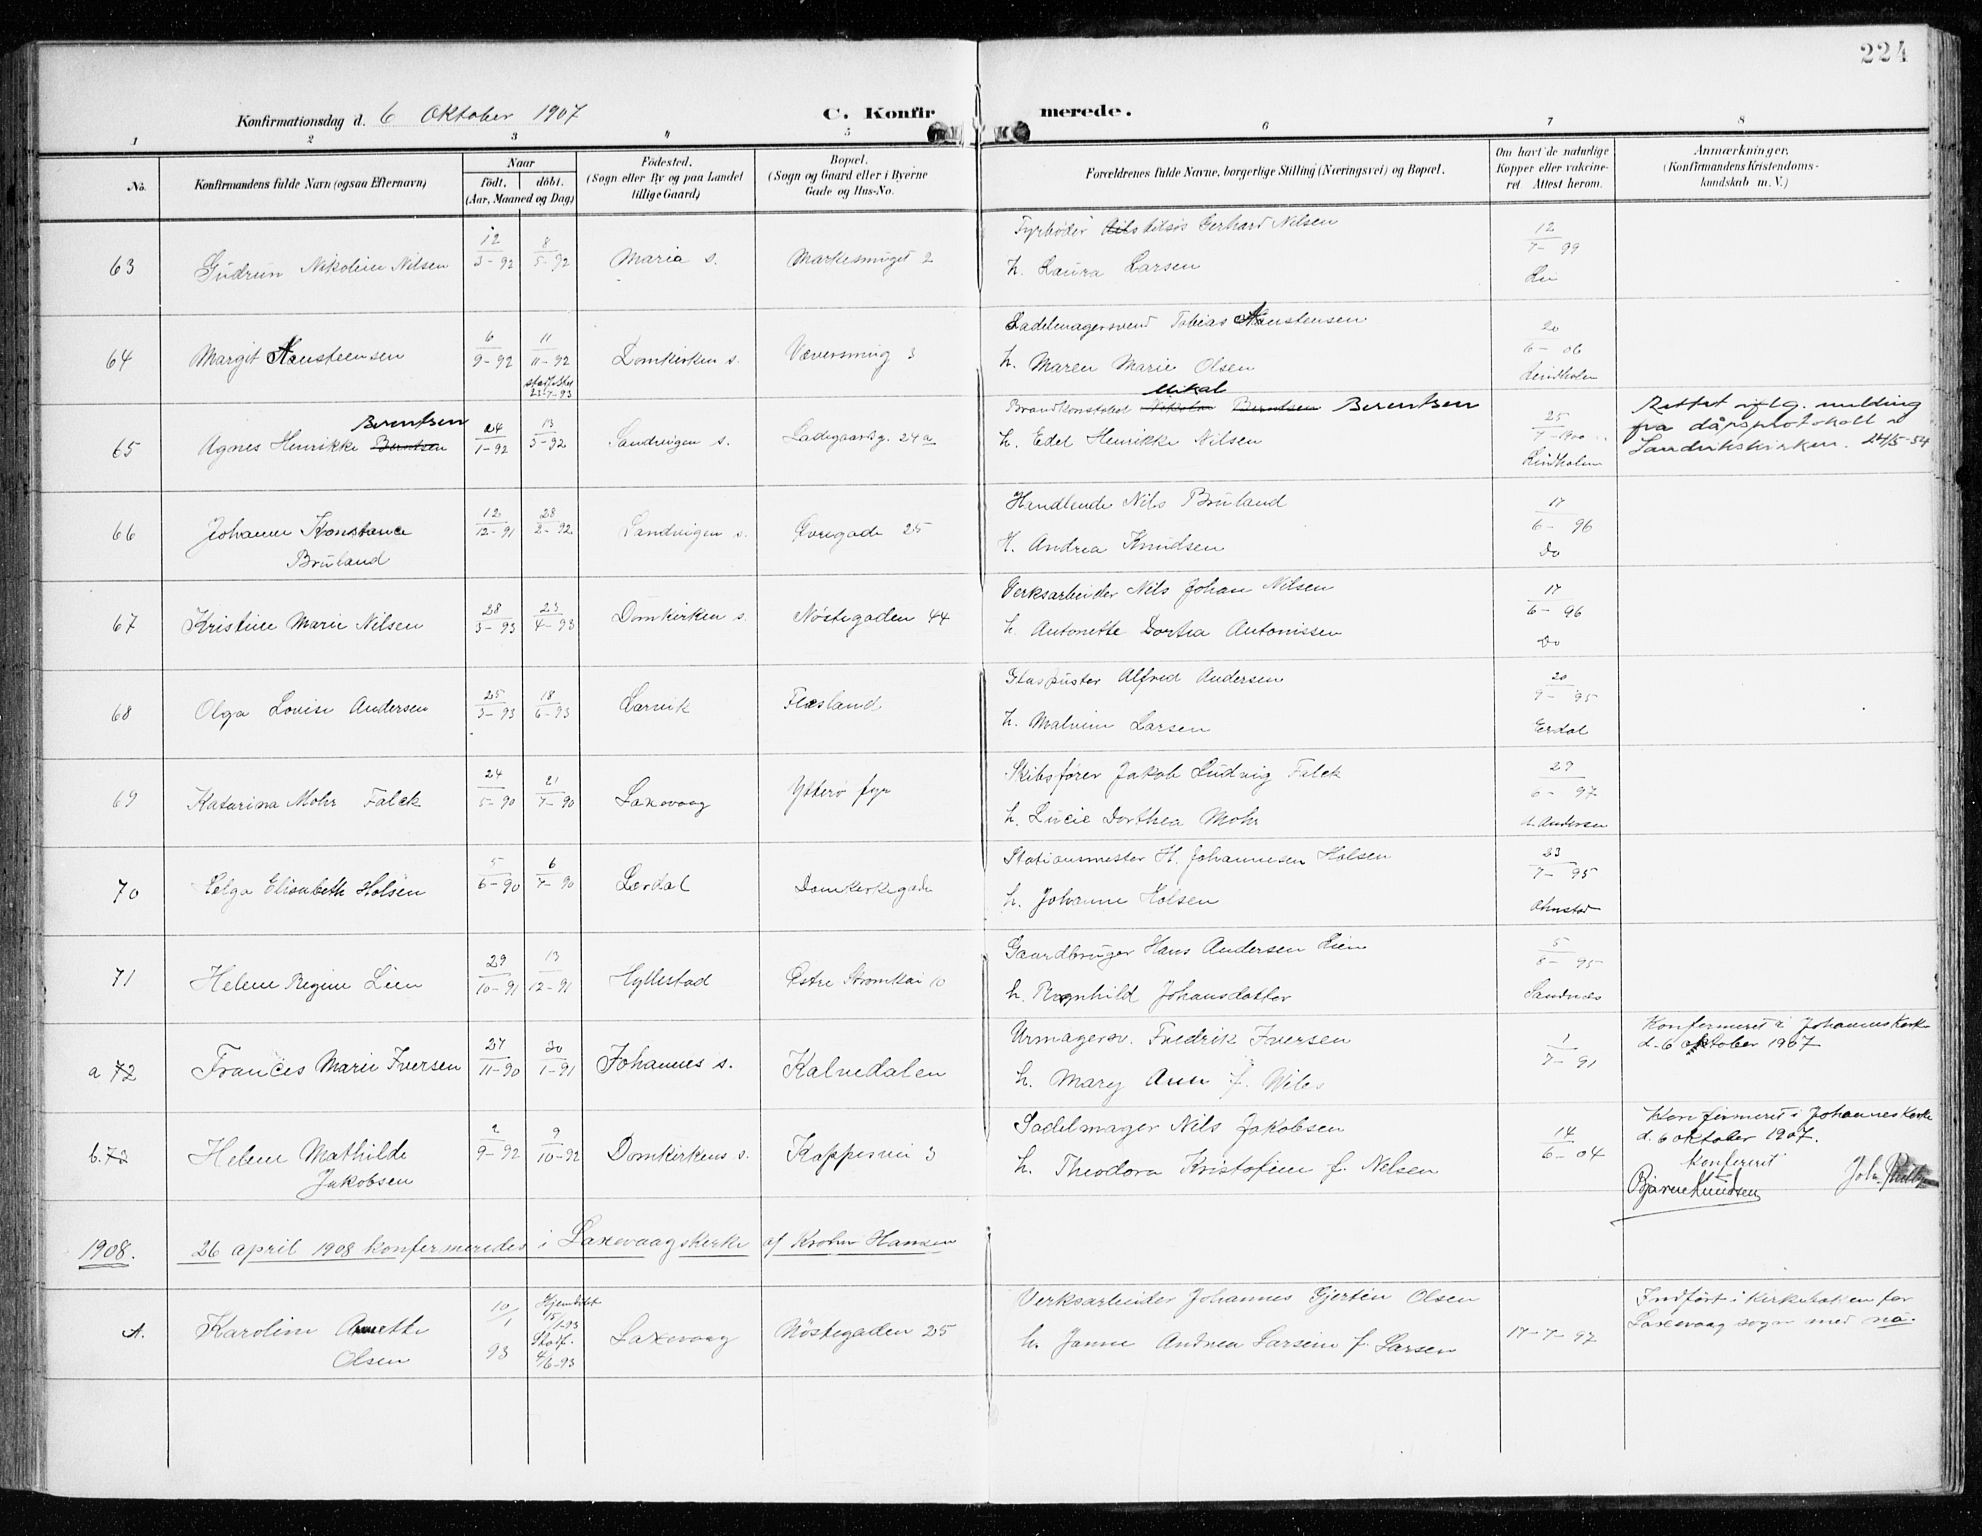 224
Konfirmationsdag d. 6 Oktober 1907
C. Konfirmerede.
1 2 3 4 5 6 7 8
No.
Konfirmandens fulde Navn (ogsaa Efternavn)
Naar
födt. döbt.
(Aar, Maaned og Dag)
Födested.
(Sogn eller By og paa Landet
tillige Gaard)
Bopæl.
(Sogn og Gaard eller i Byerne
Gade og Hus-No.
Forældrenes fulde Navne, borgerlige Stilling (Næringsvei) og Bopæl.
Om havt de naturlige
Kopper eller vakcine-
ret. Attest herom.
Anmærkninger.
(Konfirmandens Kristendoms-
kundskab m. V.)
63 Gudrun Nikoline Nilsen 12/3-92 8/5-92 Maria s. Markesmuget 2
Fyrböder Gerhard Nilsen
h. Laura Larsen
12/7-99
Lie
64 Margit Aanstensen 6/9-92 11/11-92 Domkirken s. Væversmug 3
23-7-93
Sadelmagersvend Tobias Aanstensen
h. Maren Marie Olsen
20/6-06
Lindholm
65 Agnes Henrikke Berntsen Berentsen 24/1-92 13/3-92 Sandvigen s. Ladegaardsg. 24a
Mikal
Brandkonstabel Nikolai Berntsen Berentsen
h. Edel Henrikke Nilsen
25/7-900
Lindholm
Rettet iflg. melding
fra dåpsprotokoll i
Sandvikskirken. 24/5-54
66 Johanne Konstance
Bruland
12/12-91 28/2-92 Sandvigen s. Øvregade 25
Handlende Nils Bruland
h. Andrea Knudsen
17/6-96
Do
67 Kristine Marie Nilsen 28/3-93 23/4-93 Domkirken s. Nöstegaden 44
Verksarbeider Nils Johan Nilsen
h. Antonette Dortea Antonissen
17/6-96
Do
68 Olga Lovise Andersen 25/3-93 18/6-93 Larvik Flesland
Glaspuster Alfred Andersen
h. Malvine Larsen
20/9-95
Erdal
69 Katarina Mohr Falck 24/5-90 21/7-90 Laxevaag Ytterö fyr
Skibsförer Jakob Ludvig Falck
h. Lucie Dorthea Mohr
29/6-97
Andersen
70 Helga Elisabeth Holsen 5/6-90 6/7-90 Lærdal Domkirkegade
Stationsmester H. Johannesen Holsen
h. Johanne Holsen
23/7-95
Ohnstad
71 Helene Regine Lien 29/10-91 13/12-91 Hyllestad Østre Strömkai 10
Gaardbruger Hans Andersen Lien
h. Ragnhild Johansdatter
5/8-95
Sandnes
a 72 Frances Marie Iversen 27/11-90 30/1-91 Johannes s. Kalvedalen
Urmagersv. Fredrik Iversen
h. Mary Ann f.
1/7-91
Konfirmeret i Johanneskirke
d. 6 oktober 1907
b. 72 Helene Mathilde
Jakobsen
2/9-92 9/10-92 Domkirkens s. Kappesvei 3
Sadelmager Nils Jakobsen
h. Theodora Kristofine f. Nelsen
14/6-04
Konfirmeret i Johanneskirke
d. 6 oktober 1907.
Konfereret
Bjarne Knudsen Joh.
1908. 26 april 1908 konfirmeredes i Laxevaagskirke af Krohn Hansen
A. Karoline Anette
Olsen
10/1 93
Hjemdöbt
15/1-93
Stadf.
4/6-93
Laxevaag Nöstegaden 25
Verksarbeider Johannes Gjertin Olsen
h. Janne Andrea Larsine f. Larsen
17-7-97
Indfört i kirkeboken for
Laxevaag sogn med no.